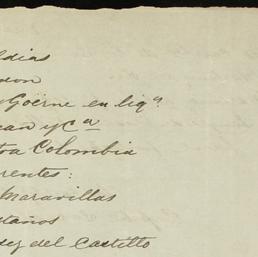 ldias
don
Goërne en liqª
ean y Cª
tra Colombia
rentes:
Maravillas
taños
dez del Castillo